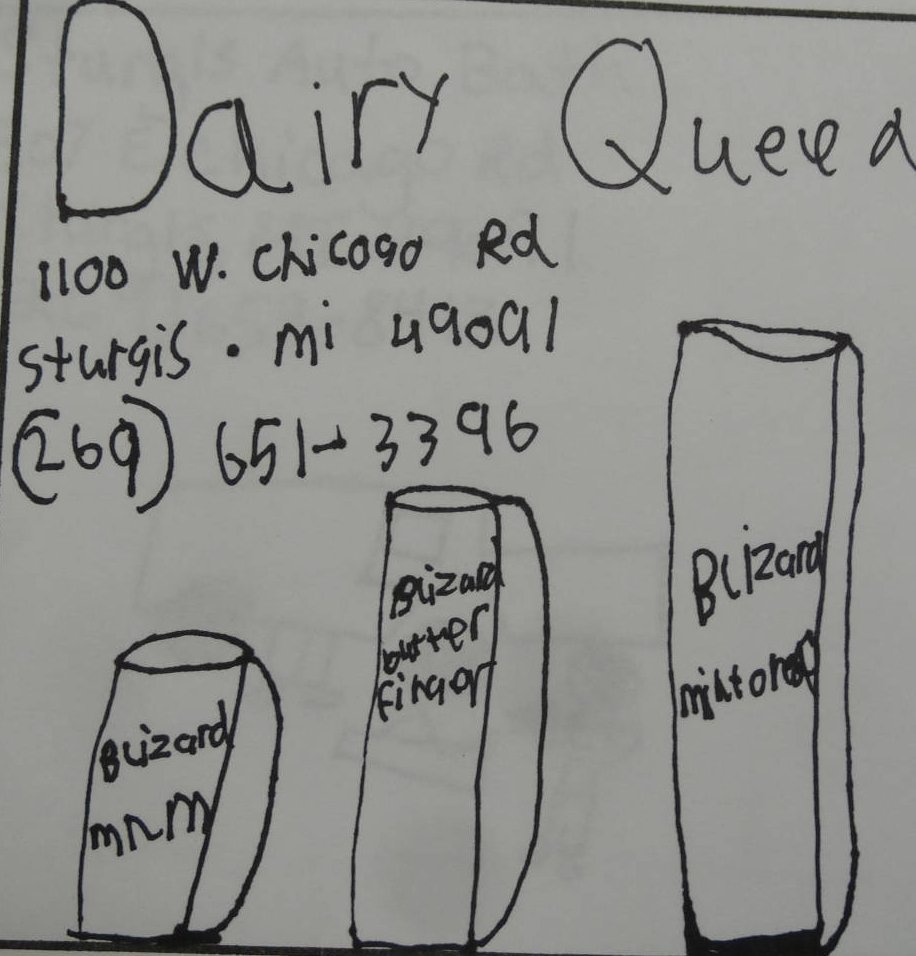 Dairy Queen
1100 W. Chicogo Rd
Sturgis . mi 49091
(269) 651-3396
Blizard
butter
finger
Blizard
mintoreo
Blizard
mnm